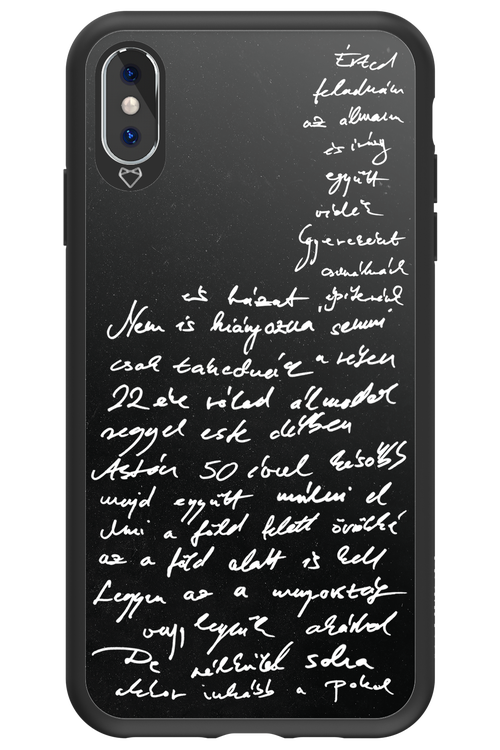 Érted
feladnám
az álmaim
és irány
együtt
vidék
Gyerekeket
csinálnánk
és házat építenénk
Nem is hiányozna semmi
csak takednéz a réten
22 éve rólad álmodok
reggel este délben
Aztán 50 évvel később
majd együtt múlni el
Ami a föld felett örökké
az a föld alatt is kell
Legyen az a mennyország
vagy legyünk akárhol
De nélküled soha
akkor inkább a pokol